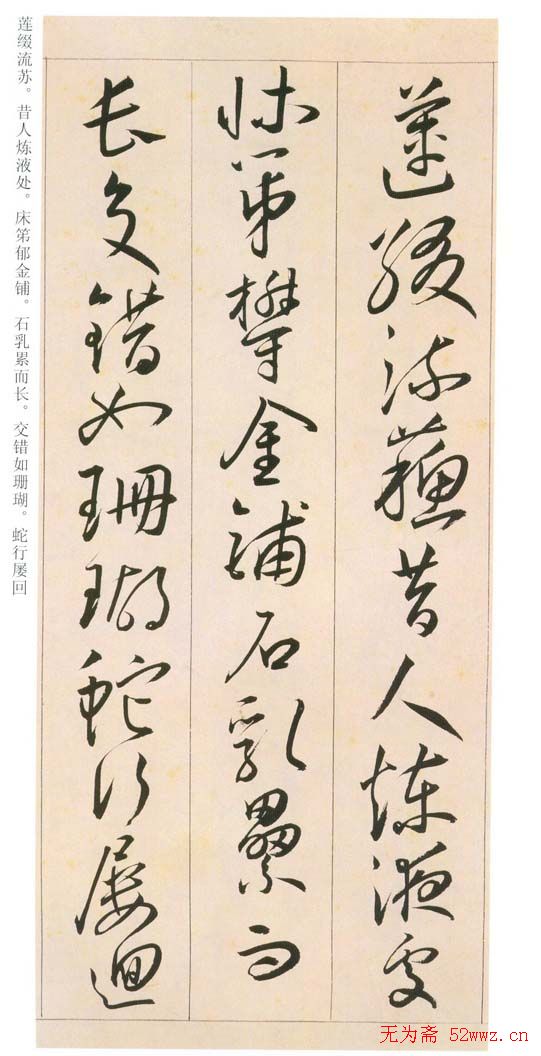 蓮綴流蘇昔人煉液處
牀第欝金鋪石乳纍而
長交錯如珊瑚蛇行屡迴
莲缀流苏。昔人炼液处。床笫郁金铺。石乳累而长。交错如珊瑚。蛇行屡回
无为斋 52wwz.cn